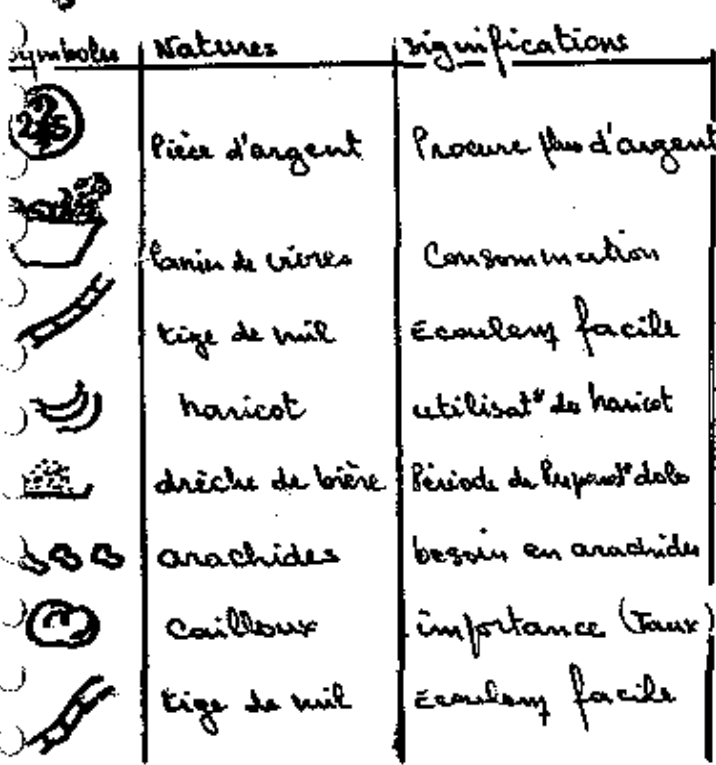 Symboles Natures significations
25 Pièce d'argent Procure plus d'argent
Panier de vivres Consommation
tige de mil Ecoulemt facile
haricot utilisat° de haricot
drèche de bière Période de Preparat° dolo
arachides besoin en arachides
Cailloux importance (Taux)
tige de mil Ecoulemt facile